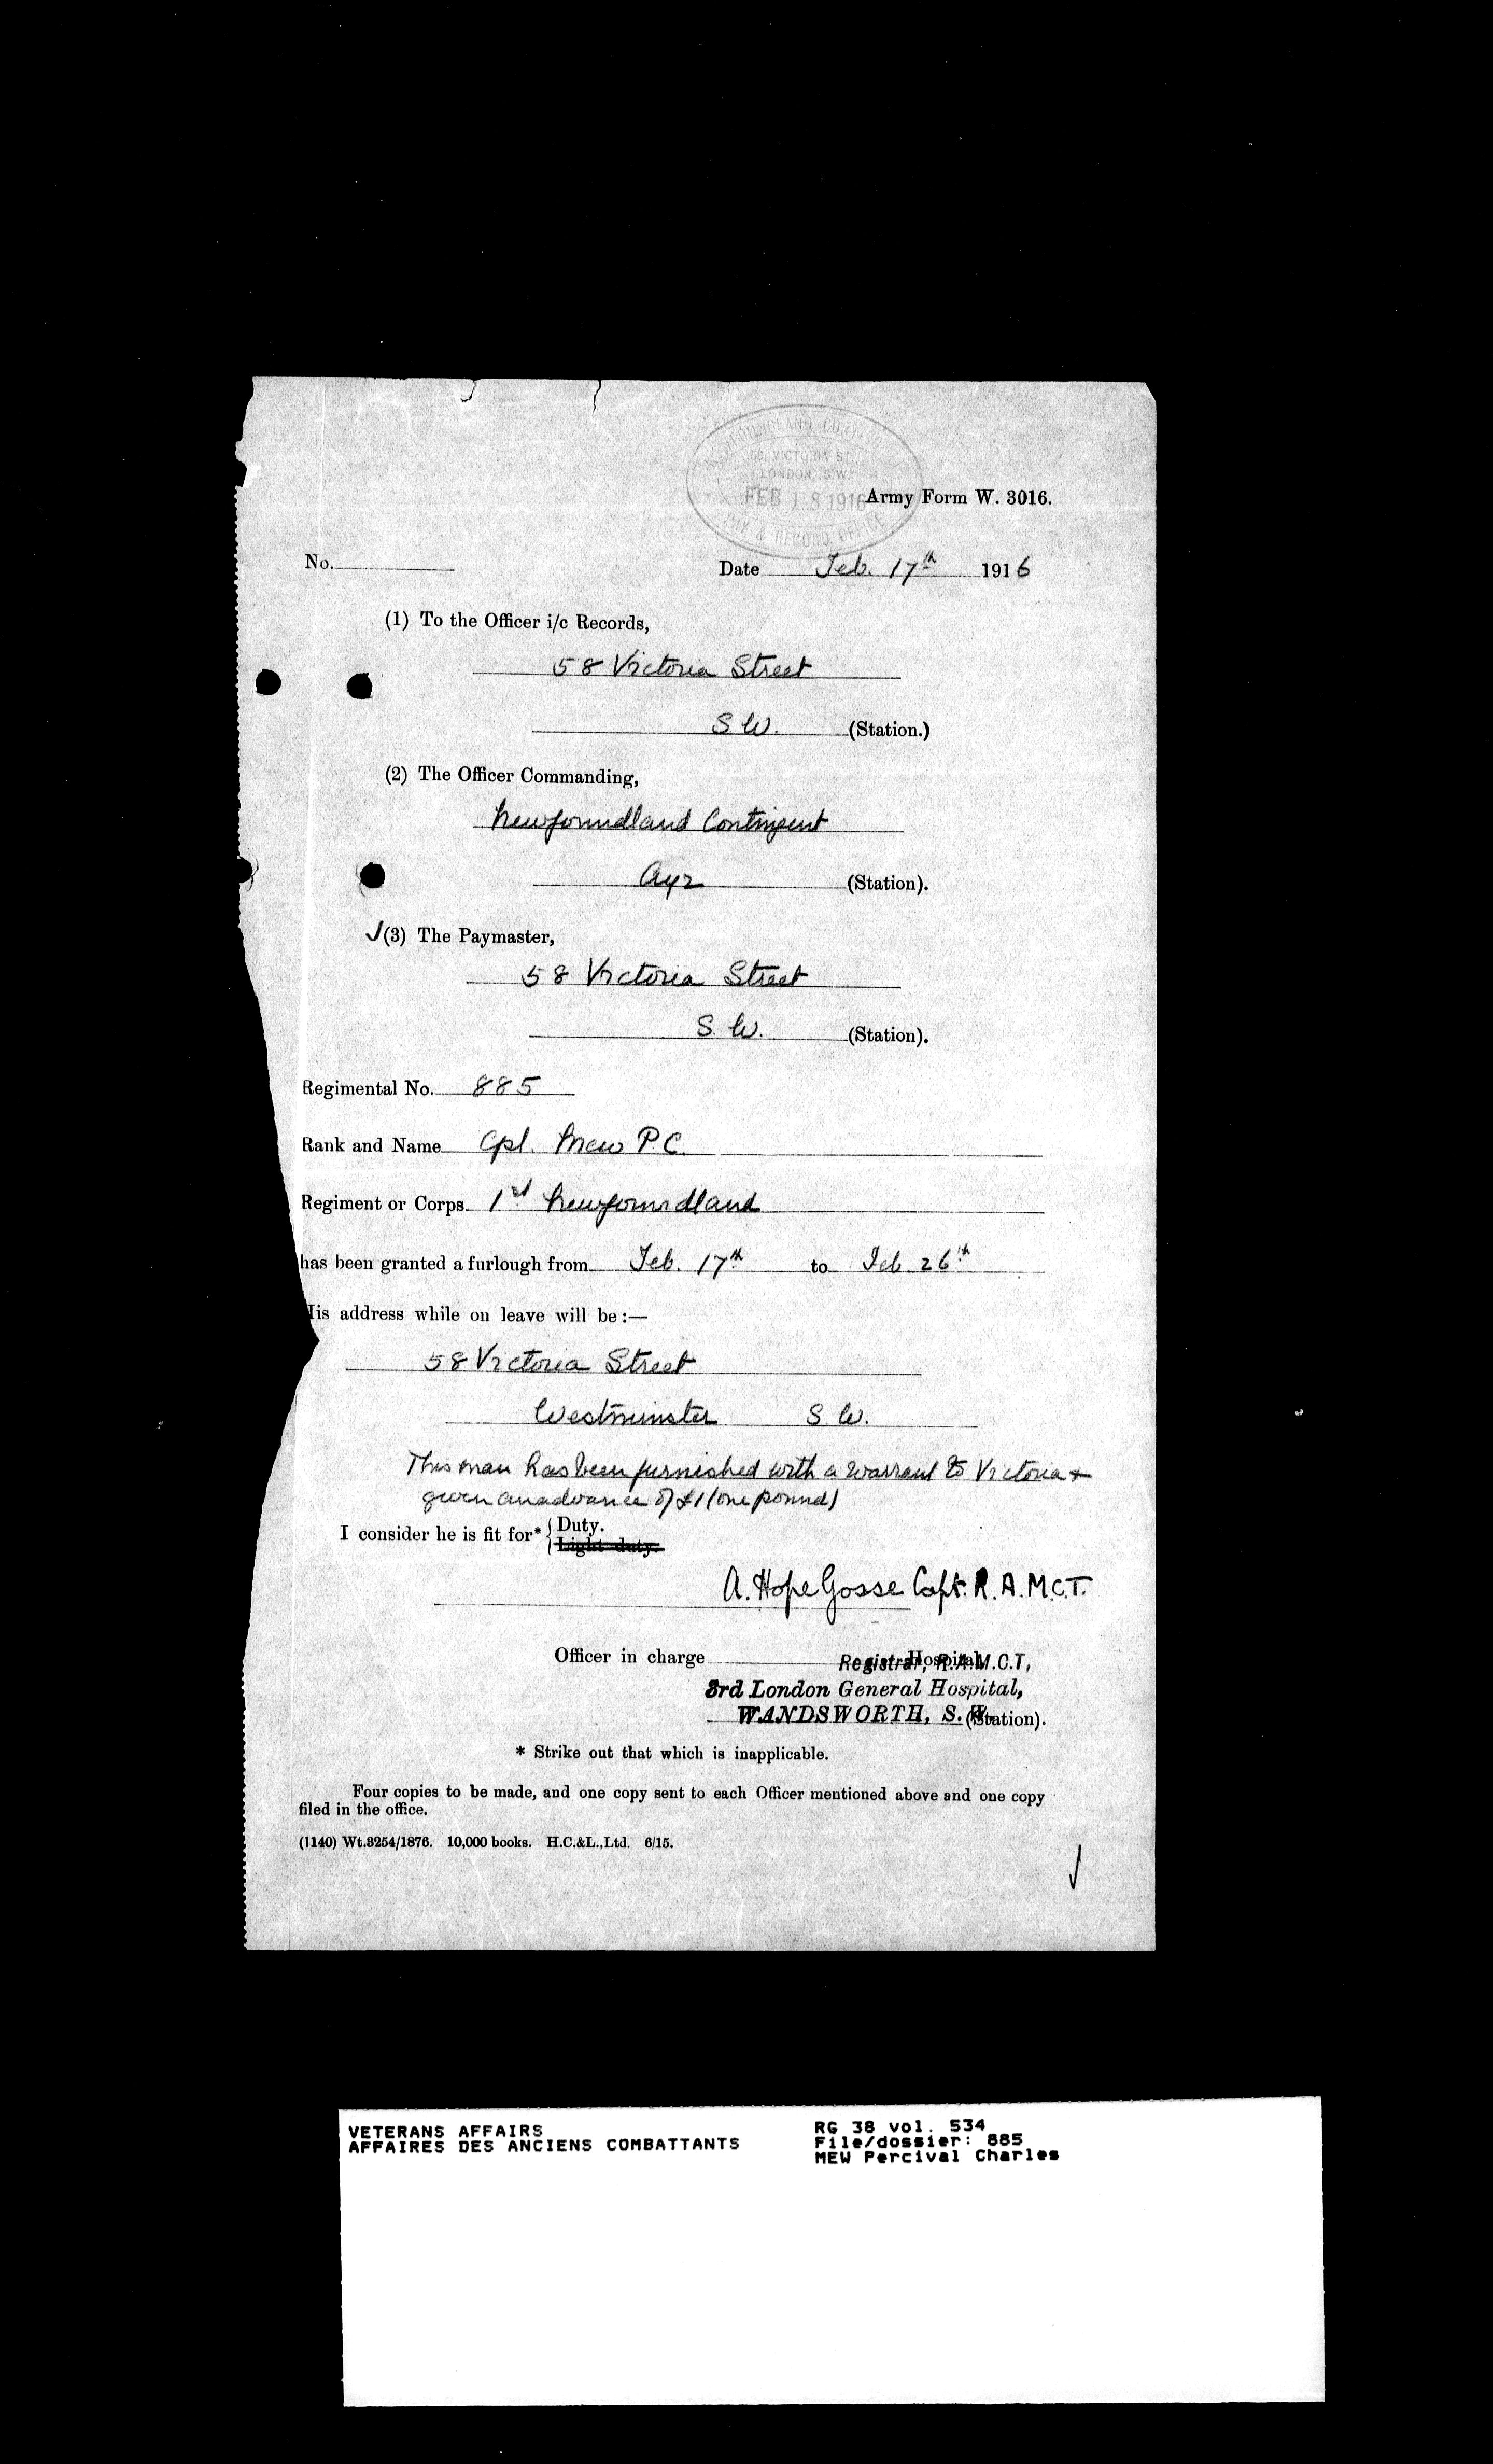 NEWFOUNDLAND CONTINGENT
58, VICTORIA ST.,
LONDON, S.W.
FEB 18 1916
PAY & RECORD OFFICE
Army Form W. 3016.
No.
Date Feb. 17th 1916
(1) To the Officer i/c Records,
58 Victoria Street
S W. (Station.)
(2) The Officer Commanding,
Newfoundland Contingent
Ayr (Station).
(3) The Paymaster,
58 Victoria Street
S. W. (Station).
Regimental No. 885
Rank and Name Cpl. Mew P.C.
Regiment or Corps 1st Newfoundland
has been granted a furlough from Feb. 17th to Feb 26th
His address while on leave will be:—
58 Victoria Street
Westminster S W.
This man has been furnished with a warrant to Victoria +
given an advance of £1 (one pound)
I consider he is fit for* { Duty.
Light duty.
A. Hope Gosse Capt. R.A.M.C.T.
Officer in charge Hospital
Registrar, R.A.M.C.T,
3rd London General Hospital,
WANDSWORTH, S.W. (Station).
* Strike out that which is inapplicable.
Four copies to be made, and one copy sent to each Officer mentioned above and one copy
filed in the office.
(1140) Wt.3254/1876. 10,000 books. H.C.&L.,Ltd. 6/15.
VETERANS AFFAIRS
AFFAIRES DES ANCIENS COMBATTANTS
RG 38 vol. 534
File/dossier: 885
MEW Percival Charles